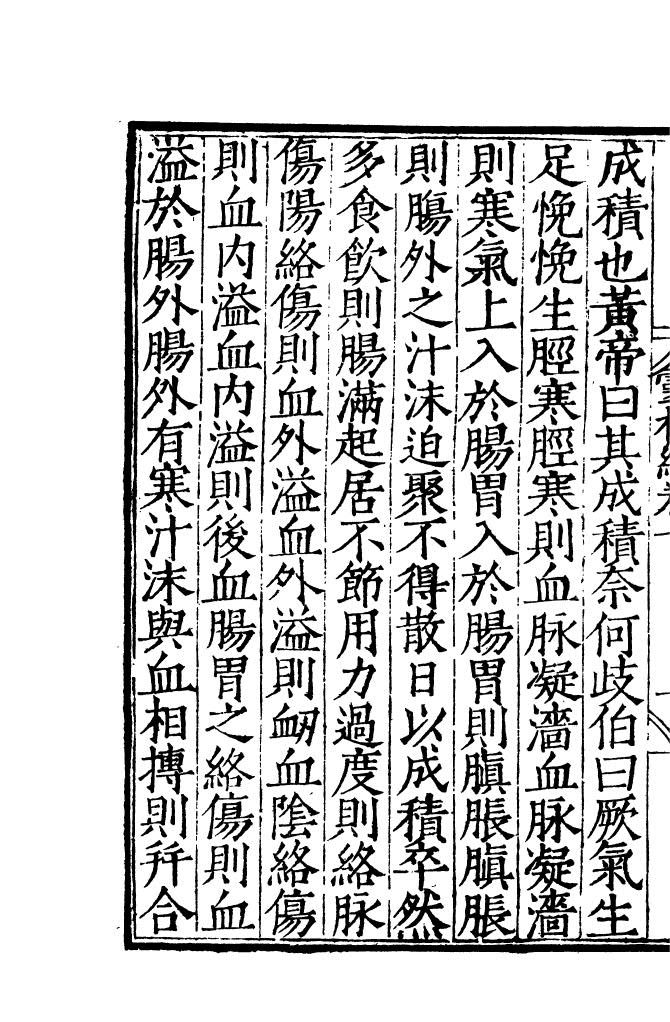 成積也黃帝曰其成積柰何歧伯曰厥氣生
足悗悗生脛寒脛寒則血脉凝濇血脉凝濇
則寒氣上入於腸胃入於腸胃則䐜脹䐜脹
則腸外之汁沫迫聚不得散日以成積卒然
多食飲則腸滿起居不節用力過度則絡脉
傷陽絡傷則血外溢血外溢則衂血陰絡傷
則血内溢血内溢則後血腸胃之絡傷則血
溢於腸外腸外有寒汁沫與血相搏則并合